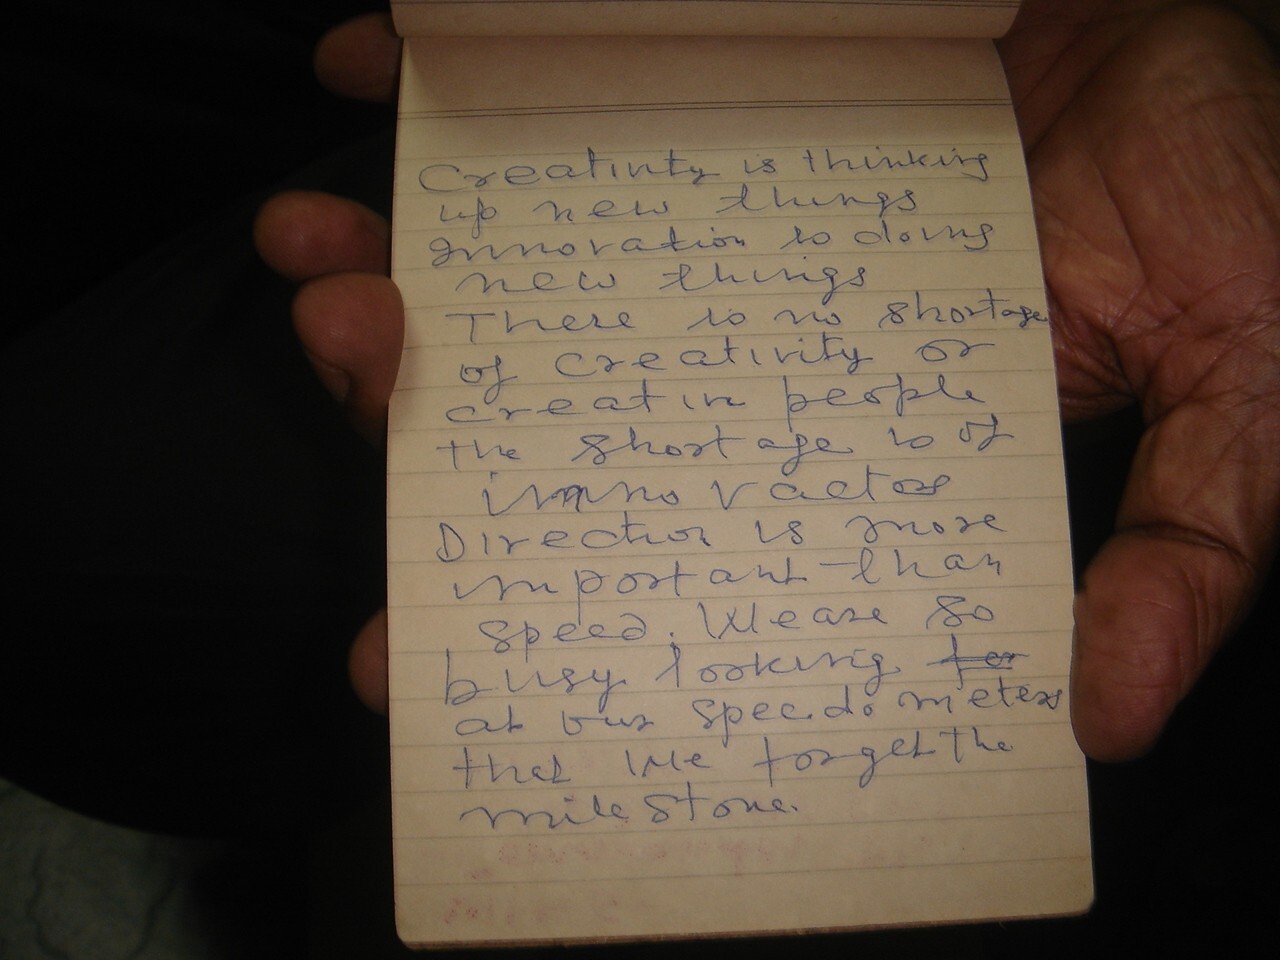 Creativity is thinking
up new things
Innovation is doing
new things
There is no shortage
of creativity or
creative people
the shortage is of
innovators
Direction is more
important than
speed. We are so
busy looking for
at our speedometers
that we forget the
milestone.